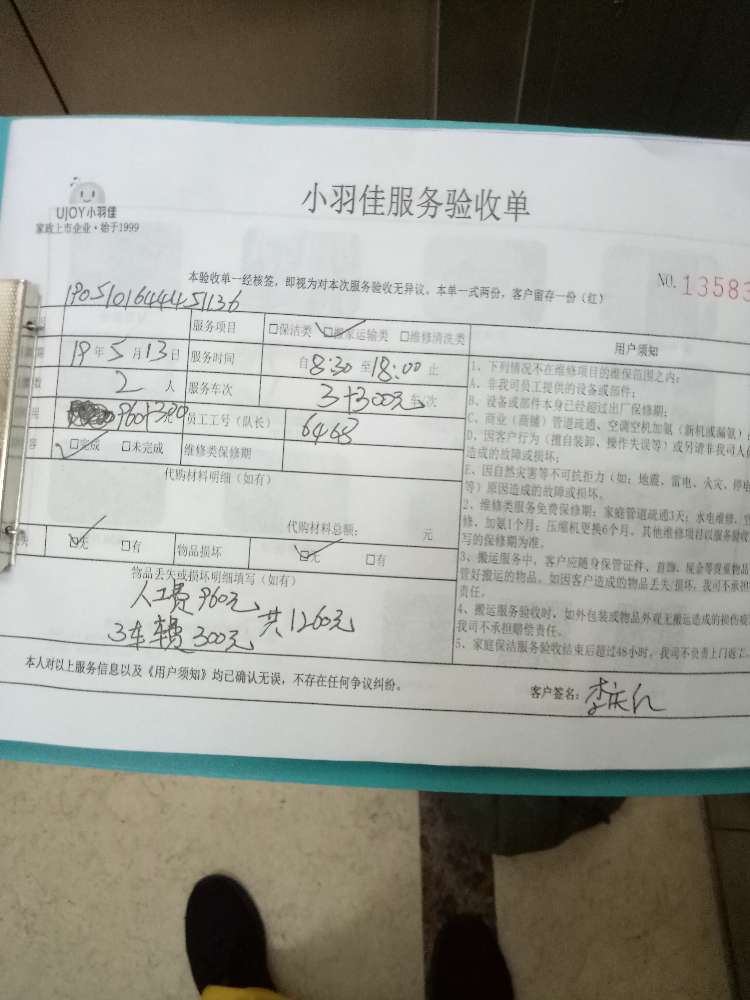 UJOY小羽佳
家政上市企业·始于1999
小羽佳服务验收单
本验收单一经核签，即视为对本次服务验收无异议。本单一式两份，客户留存一份（红）
NO. 13583
服务项目 □保洁类 □搬家运输类 □维修清洗类
19年5月13日 服务时间 自8:30至18:00止
2人 服务车次 3+300元 车次
960+300 员工工号（队长） 6468
□完成 □未完成 维修类保修期
代购材料明细（如有）
代购材料总额： 元
□无 □有 物品损坏 □无 □有
物品丢失或损坏明细填写（如有）
人工费960元
3车费300元
共1260元
用户须知
1、下列情况不在维修项目的维保范围之内：
A、非我司员工提供的设备或部件；
B、设备或部件本身已经超过出厂保修期；
C、商业（商铺）管道疏通、空调空机加氨（新机或漏氨）
D、因客户行为（擅自装卸、操作失误等）或另请非我司人
造成的故障或损坏；
E、因自然灾害等不可抗拒力（如：地震、雷电、火灾、停电
等）原因造成的故障或损坏。
2、维修类服务免费保修期：家庭管道疏通3天；水电维修、空
修、加氨1个月；压缩机更换6个月。其他维修项目以服务验收
写的保修期为准。
3、搬运服务中，客户应随身保管证件、首饰、现金等贵重物品
管好搬运的物品。如因客户造成的物品丢失/损坏，我司不承担
责任。
4、搬运服务验收时，如外包装或物品外观无搬运造成的损伤痕
我司不承担赔偿责任。
5、家庭保洁服务验收结束后超过48小时，我司不负责上门返工。
本人对以上服务信息以及《用户须知》均已确认无误，不存在任何争议纠纷。
客户签名：